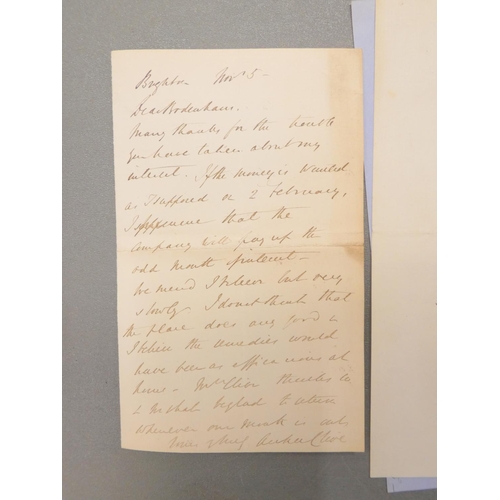 Brighton Nov. 5 -
Dear Bodenham.
Many thanks for the trouble
you have taken about my
interest. If the money is wanted
as I supposed on 2 February,
I suppose that the
Company will pay up the
odd month
We mend I believe but very
slowly. I do not think that
the place does any good &
I believe the remedies would
have been as efficacious at
home - Mrs Clive thanks to
& shall be glad to return
whenever our month is out
Yours Clive